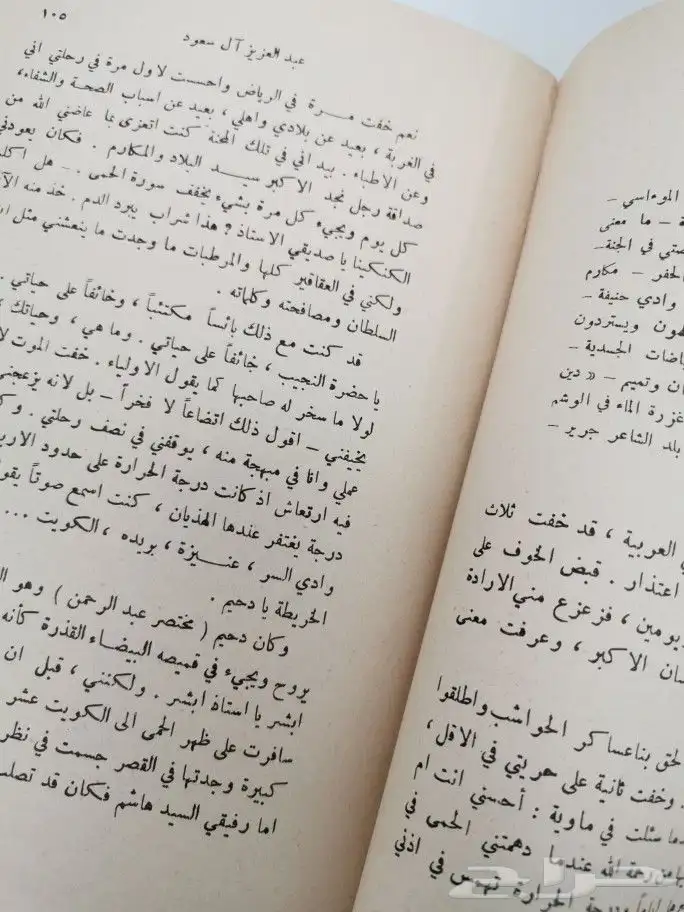 الموءاسي –
ة – ما معنى
صتي في الجنة –
الحفر – مكارم
وادي حنيفة –
هون ويستردون
ياضات الجسدية –
ان وتميم – « دين
غزرة الماء في الوشم
بلد الشاعر جرير –
العربية ، قد خفت ثلاث
اعتذار . قبض الخوف على
يومين ، فزعزع مني الارادة
سان الاكبر ، وعرفت معنى
لحق بنا عساكر الحواشب واطلقوا
وخفت ثانية على حريتي في الاقل ،
مثلت في ماوية : أحسني انت ام
من رحمة الله عندما دهمتني الحمى في
ودرجة الحرارة تهمس في اذني
١٠٥
عبد العزيز آل سعود
نعم خفت مرة في الرياض واحسست لاول مرة في رحلتي اني
في الغربة ، بعيد عن بلادي واهلي ، بعيد عن اسباب الصحة والشفاء ،
وعن الاطباء . بيد اني في تلك المحنة كنت اتعزى بما عاضني الله من
صداقة رجل نجد الاكبر سيد البلاد والمكارم . فكان يعودني
كل يوم ويجيء كل مرة بشيء يخفف سورة الحمى . – هل اكلت
الكنكينا يا صديقي الاستاذ ? هذا شراب يبرد الدم . خذ منه الآن
ولكني في العقاقير كلها والمرطبات ما وجدت ما ينعشني مثل
السلطان ومصافحته وكلماته .
قد كنت مع ذلك بائساً مكتئباً ، وخائفاً على حياتي .
يا حضرة النجيب ، خائفاً على حياتي . وما هي ، وحياتك ،
لولا ما سخر له صاحبها كما يقول الاولياء . خفت الموت لا
يخيفني – اقول ذلك اتضاعاً لا فخراً – بل لانه يزعجني
عملي وانا في مبهجة منه ، يوقفني في نصف رحلتي .
فيه ارتعاش اذ كانت درجة الحرارة على حدود
درجة يغتفر عندها الهذيان ، كنت اسمع صوتاً يقول
وادي السر ، عنيزة ، بريده ، الكويت ...
الخريطة يا دحيم .
وكان دحيم ( مختصر عبد الرحمن ) وهو
يروح ويجيء في قميصه البيضاء القذرة كأنه
ابشر يا استاذ ابشر . ولكنني ، قبل ان
سافرت على ظهر الحمى الى الكويت عشر
كبيرة وجدتها في القصر جسمت في نظر
اما رفيقي السيد هاشم فكان قد
حراج